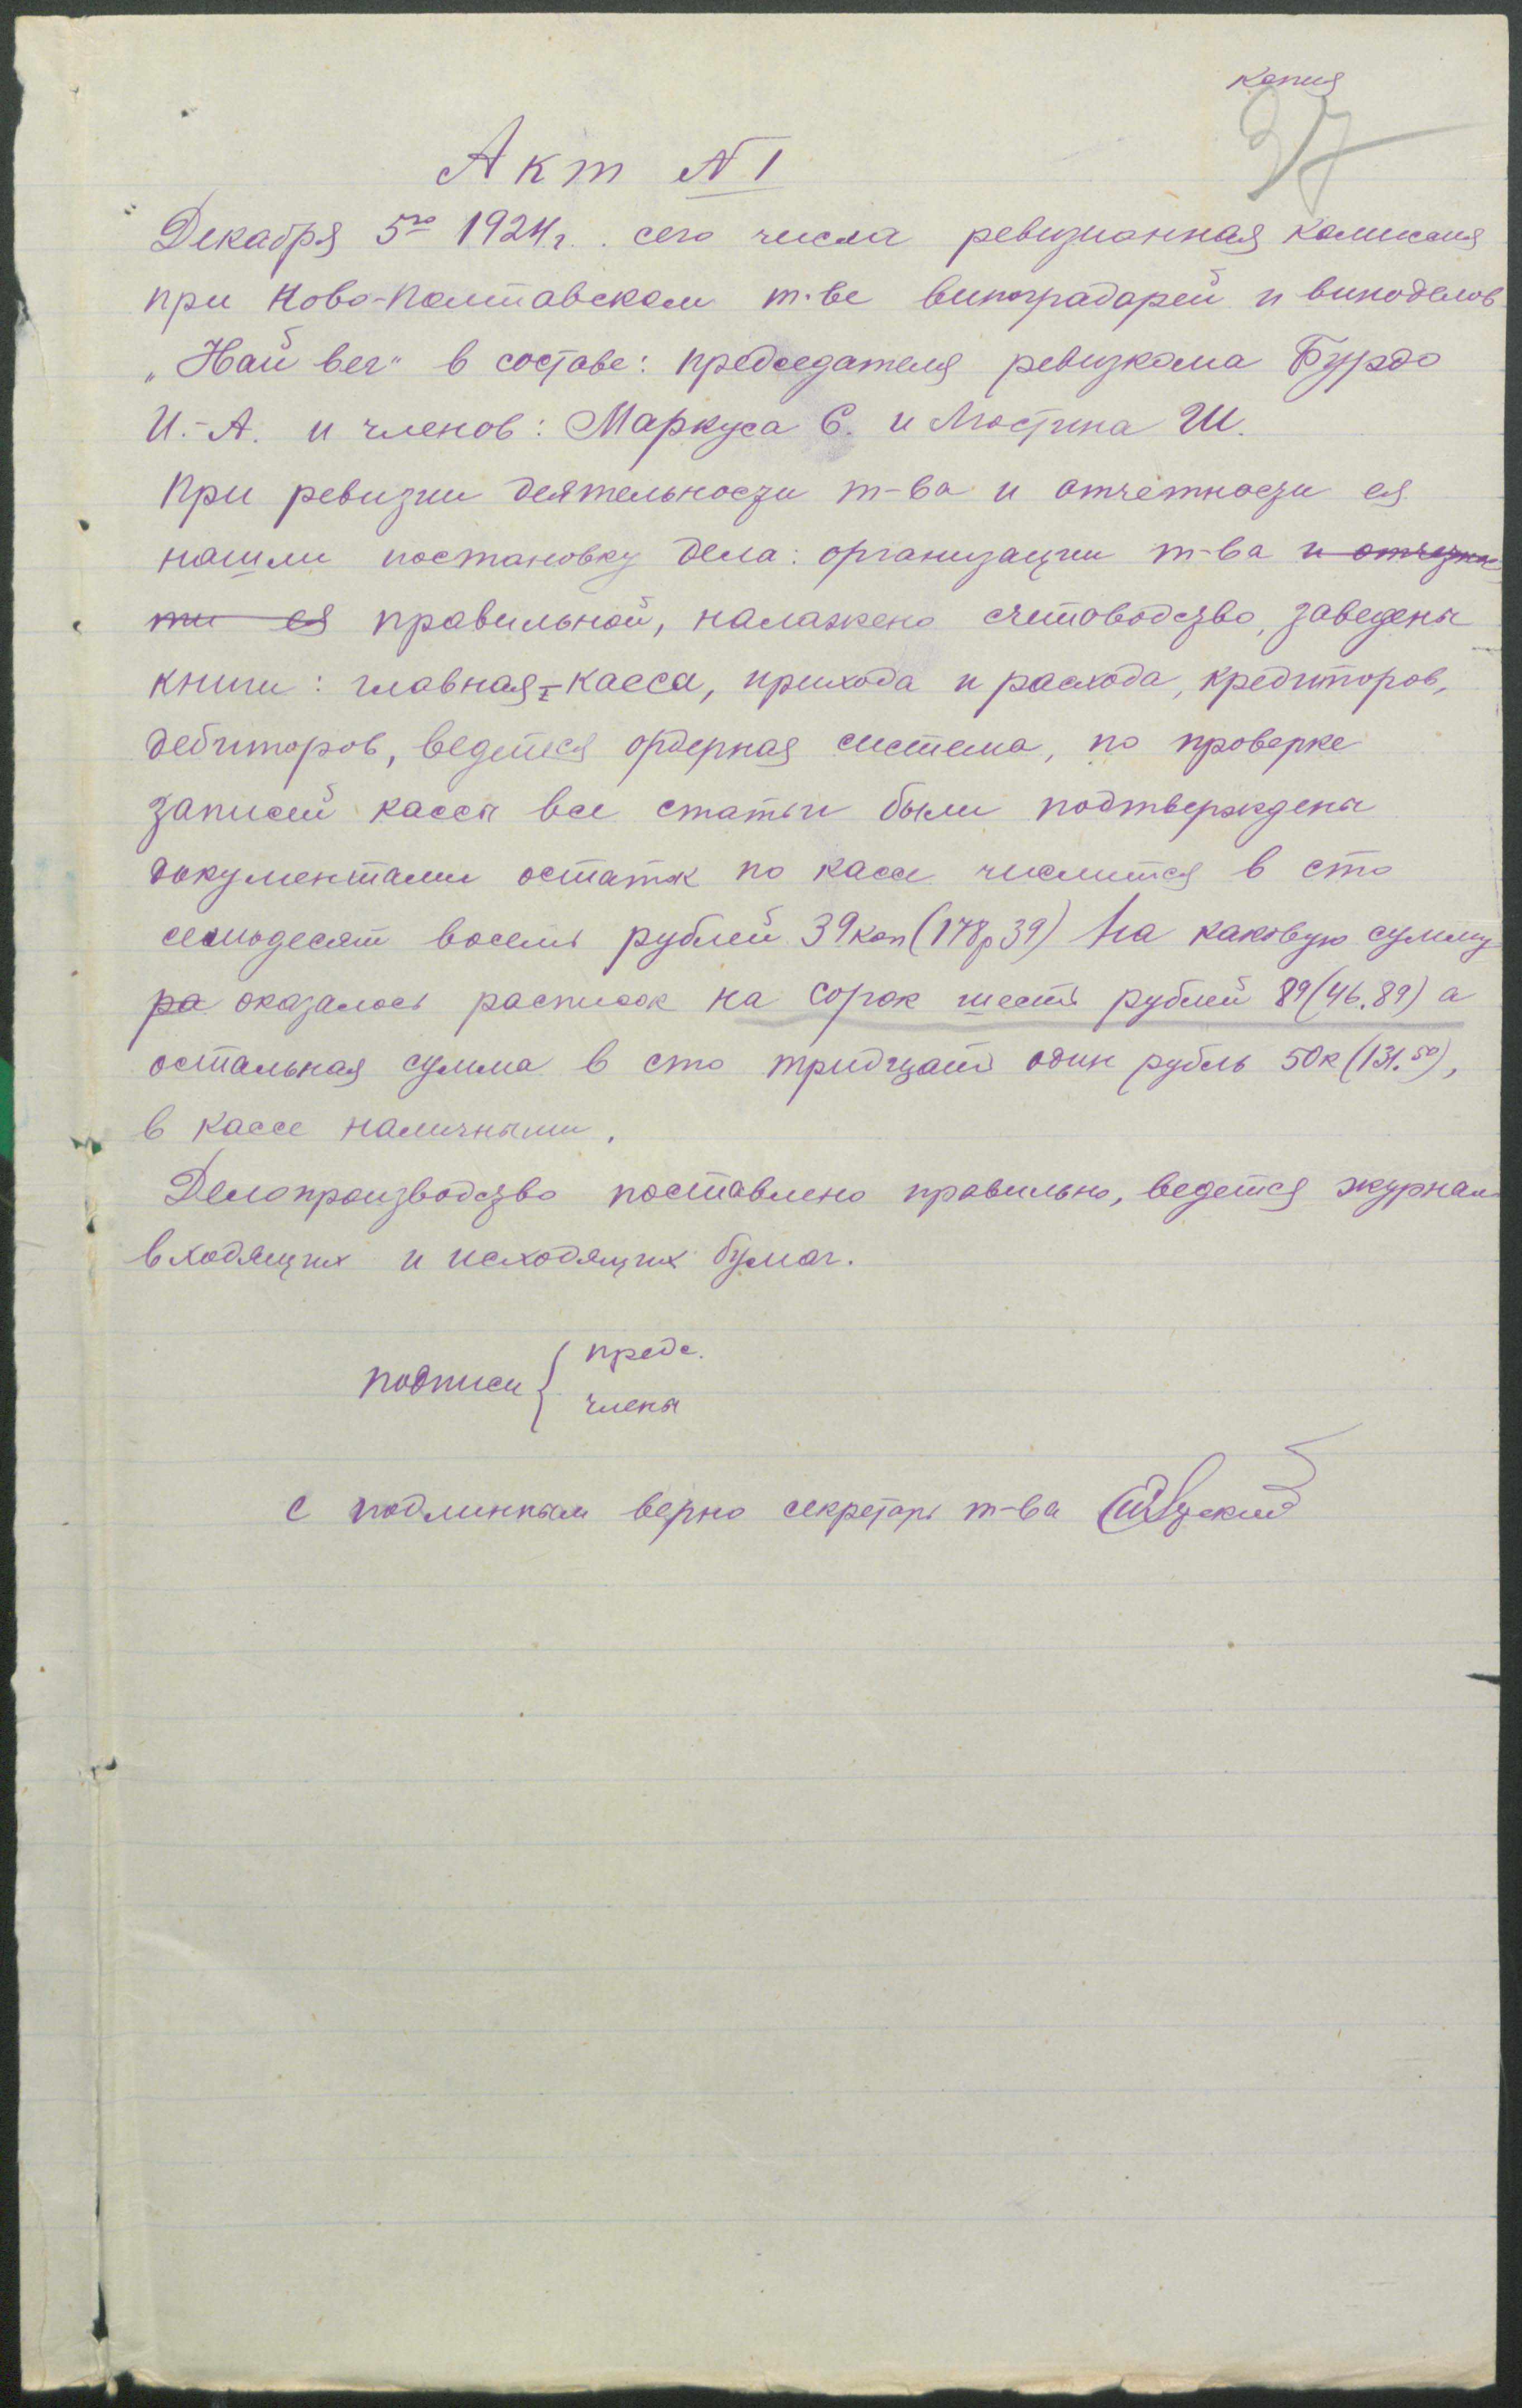 копия
37
Акт № 1
Декабря 5го 1924г. сего числа ревизионная комиссия
при Ново-Полтавском т-ве виноградарей и виноделов
„Най вег" в составе: председателя ревизкома Бурдо
И.-А. и членов: Маркуса С. и Люстина Ш.
При ревизии деятельности т-ва и отчетности ея
нашли постановку дела: организации т-ва и отчетнос
ти ея правильной, налажено счетоводство, заведены
книги: главная-касса, прихода и расхода, кредиторов,
дебиторов, ведется ордерная система, по проверке
записей кассы все статьи были подтверждены
документами остаток по кассе числится в сто
семьдесят восемь рублей 39коп(178р39) На каковую сумму
ра оказалось расписок на сорок шесть рублей 89(46.89) а
остальная сумма в сто тридцать один рубль 50к(131.50),
в кассе наличными.
Делопроизводство поставлено правильно, ведется журнал
входящих и исходящих бумаг.
подписи { предс.
члены
с подлинным верно секретарь т-ва